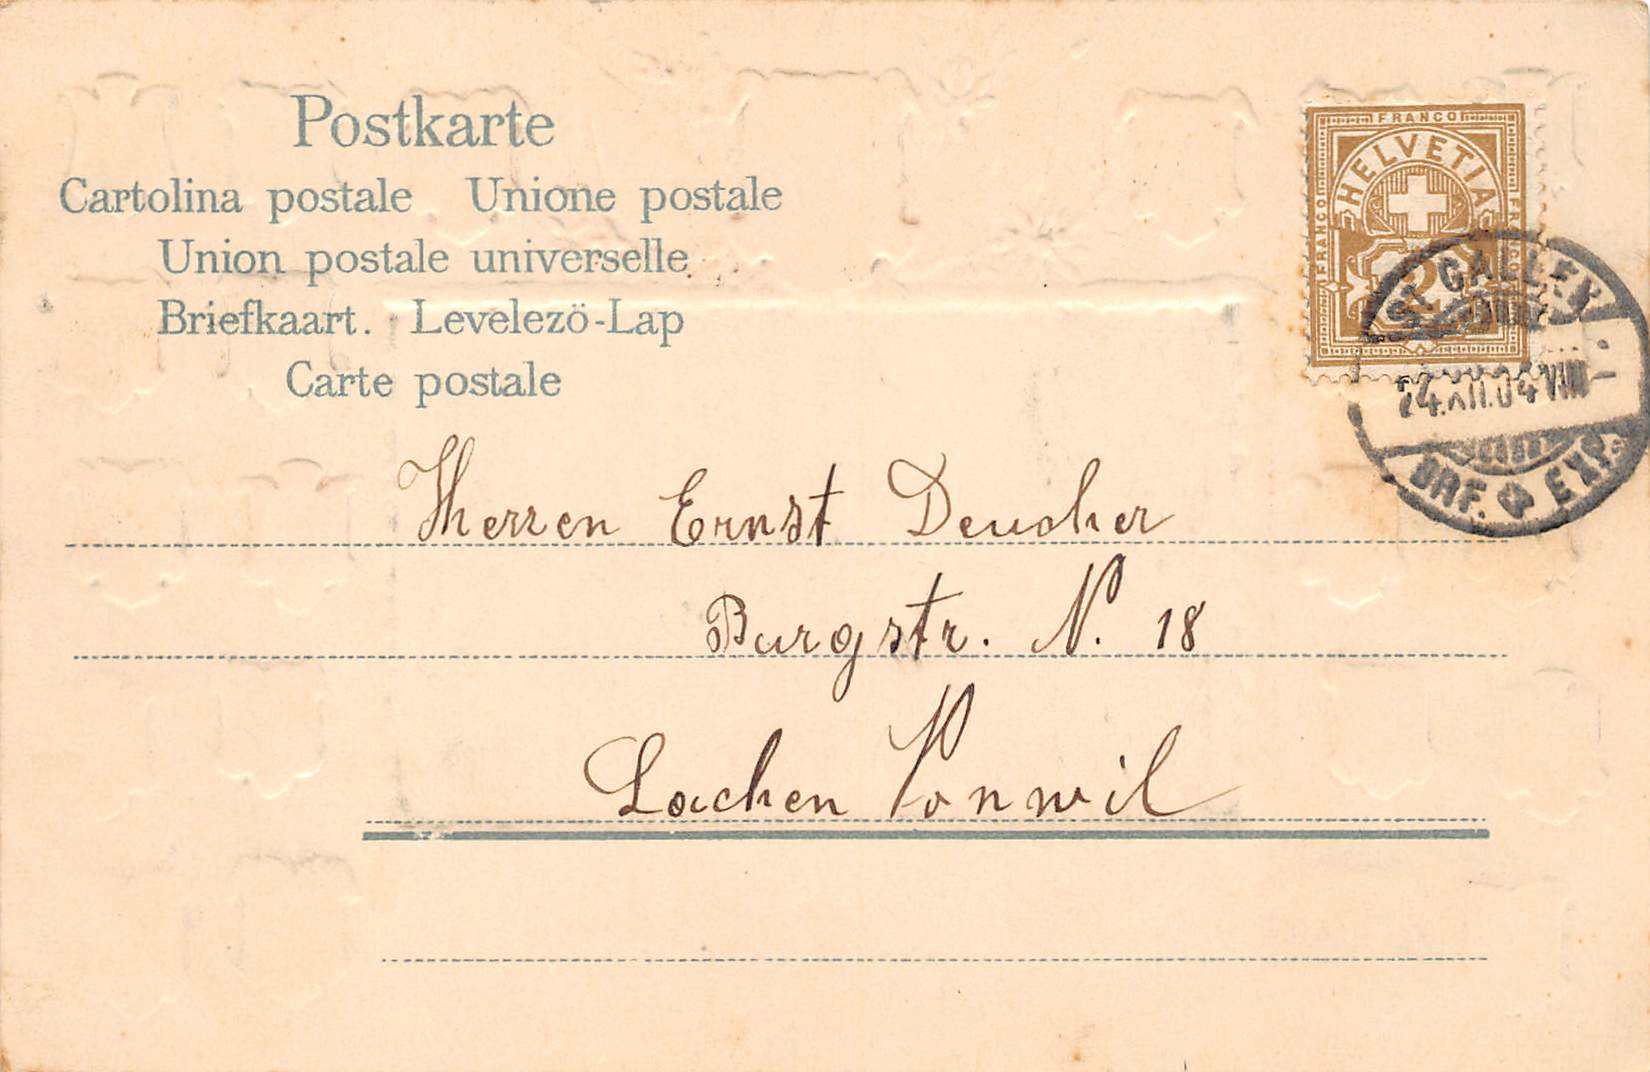 Postkarte
Cartolina postale Unione postale
Union postale universelle
Briefkaart. Levelezö-Lap
Carte postale
FRANCO
HELVETIA
FRANCO
FRANCO
2
ST. GALLEN
BRF. EXP.
Herren Ernst Deucher
Burgstr. N. 18
Lachen Vonwil